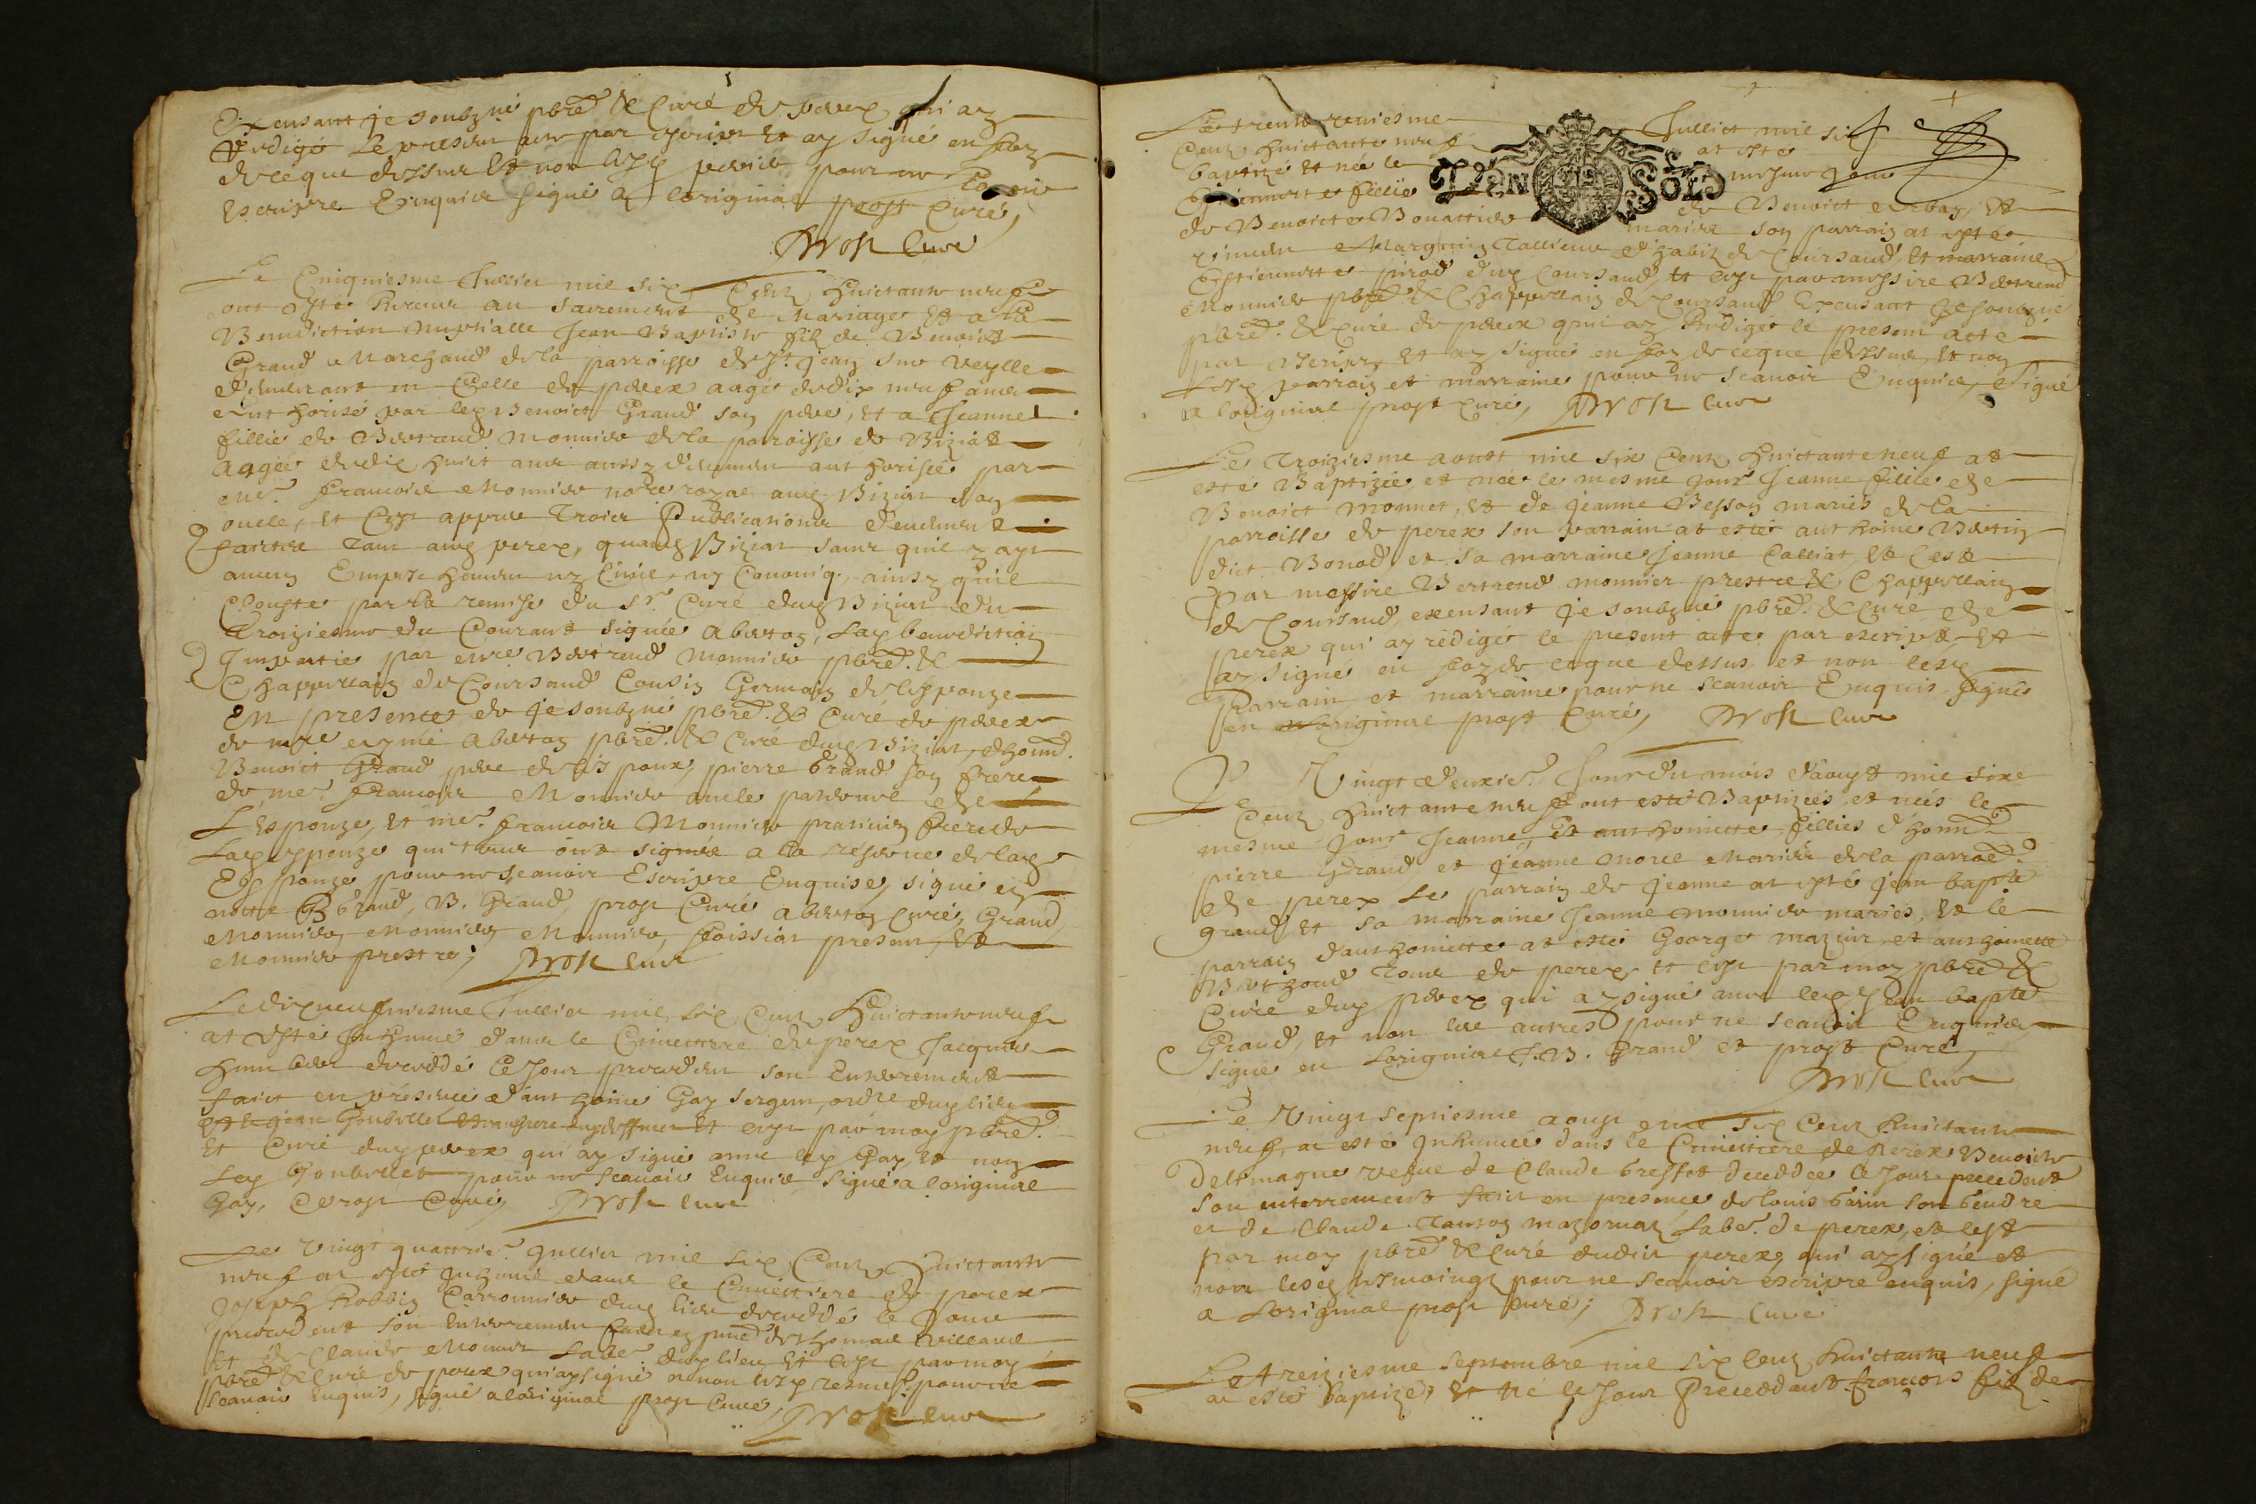 Exensant je soubzné pbre & Curé de perex qui ay
redigé le present acte par escript et ay signé en foy
de ce que dessus et non lesd. pour ne scavoir
escripre Enquis signé a loriginal prost Curé,
Prost Cure
Le Cinquiesme Juillet mil six Cent huictante neuf
ont esté Receus au sacrement de Mariage et a la
Benediction nuptialle Jean Baptiste fils de Benoict
Grand Marchand de la parroisse de St. Jean sur Veylle
demeurant en Celle de perex aagé de dix neuf ans
authorisé par led. Benoict Grand son pere, et a Jeanne
fillie de Bertrand Monnier de la paroisse de Biziat
aagée de dix huict ans aussy authorisée par
Me. Francois Monnier no.re royal aud. Biziat son
oncle, et Ce appres Trois Publications deuement
faictes tant aud. perex, quaud. Biziat sans quil y ayt
aucun Empeschement ny Civil ny Canoniq. ainsy quil
Conste par la remise du Sr. Curé dud. Biziat du
Troiziesme du Courant signée Aberton, Lad. benediction
Impartie par Mre Bertrand Monnier pbre. &
Chappellain de Coursand Cousin Germain de lespouze
En presence de je soubzné pbre. & Curé de perex
de Mre Aberton pbre. & Curé dud. Biziat, d'honn.
Benoict Grand pere de lespoux, pierre Grand son frere
de Me. Francois Monnier oncle paternel de
Lespouze, et Me. francois Monnier praticien frere de
Lad. espouze qui tous ont signé a la reserve de lad.
Espouze pour ne scavoir Escripre Enquise, signé en
Grand, B. Grand, prost Curé Aberton Curé, Grand,
Monnier, Monnier, Monnier, present, et
Monnier prestre; Prost Cure
Le dixneufviesme Juillet mil six Cent huictante neuf
at esté Inhumé dans le Cimettiere de perex Jacques
Humbert decedé le Jour precedent son Enterrement
faict en présence d'anthoine Gay sergent, ord.re dud. lieu
et Jean Gonbollet et ce par moy pbre.
et Curé dud. perex qui ay signé avec led. Gay, et non
Led. Gonbollet pour ne scavoir Enquis, signé a loriginal
Gay, Prost Curé, Prost Cure
Le Vingt quattrie. Juillet mil six Cent huictante
neuf at esté Inhumé dans le Cimettiere de perex
Joseph Robbin Carronnier dud. lieu decedé le Jour
precedent son Enterrement faict en pnce de Thomas Villand
et de Claude Monnet Labr. dud. lieu et ce par moy
pbre & Curé de perex qui ay signé et non lesd. tesmoins pour ne
scavoir Enquis, signé a loriginal prost Curé,
Prost Cure
Le trente uniesme Juillet mil six
Cent huictante neuf at esté
baptizé et née le mesme jour
Estiennette fillie de Benoict et
de Benoicte Bonattier mariés son parrain at esté
Tallieur d'habitz de Coursand, et marraine
Estiennette pirod dud. Coursand, et ce par messire Bertrand
Monnier pbre & Chappellain de Coursand Exensant Je soubzné
pbre. & Curé de perex qui ay Redigé le present acte
par escript, et ay signé en foy de ce que dessus, et non
Lesd. parrain et marraine pour ne scavoir Enquis, Signé
a loriginal prost Curé, Prost Cure
Le Troiziesme aoust mil six Cent huictante neuf at
esté Baptizée et née le mesme jour Jeanne fillie de
Benoict Monnet, et de Jeanne Besson mariés de la
parroisse de perex son parrain at esté anthoine Bertin
dict Bonod et sa marraine Jeanne Calliat, et Cest
par messire Bertrand monnier prestre & Chappellain
de Coursand, exensant je soubzné pbre. & Curé de
perex qui ay rédigé le present acte par escript et
ay signé en foy de ce que dessus et non lesd.
Parrain et marraine pour ne scavoir Enquis, signé
en loriginal prost Curé, Prost Cure
Le Vingt deuxie. Jour du mois d'aoust mil six
Cent huictante neuf ont esté Baptizées et nées le
mesme jour Jeanne, et anthoinette fillies d'honn.
pierre Grand et Jeanne Morel Mariés de la parroe.
de perex Le parrain de Jeanne at esté Jean bapte
grand, et sa marraine Jeanne monnier mariés, et le
parrain d'anthoinette at esté George mazuir, et anthoinette
Berthoud Tous de perex, et ce par moy pbre &
Curé dud. perex qui ay signé avec led. Jean bapte
Grand, et non les autres pour ne scavoir Enquis
signé en Loriginal J. B. Grand et prost Curé,
Prost Cure
Le Vingt septiesme aoust mil six Cent huictante
neuf, at esté Inhumée dans le Cimettiere de Perex Benoiste
Delsmagne vefve de Claude bressot deceddee le Jour precedent
Son enterrement faict en presence de Louis Garin son Gendre
et de Claude Tauton mazornay Labr. de perex, et cest
par moy pbre & Curé dudit perex, qui ay signé et
non lesd. tesmoings pour ne scavoir escripre enquis, signé
a Loriginal prost Curé; Prost Cure
Le treiziesme septembre mil six Cent huictante neuf
at esté baptizé, et né le Jour Preceddant francois fils de